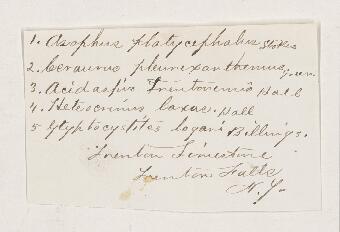 1. Asaphus platycephalus Stokes
2. Ceraurus pleurexanthemus, Green
3. Acidaspis Trentonensis Hall
4. Heterocrinus laxus. Hall
5 Glyptocystites logani Billings.
Trenton Limestone
Trenton Falls
N. Y.